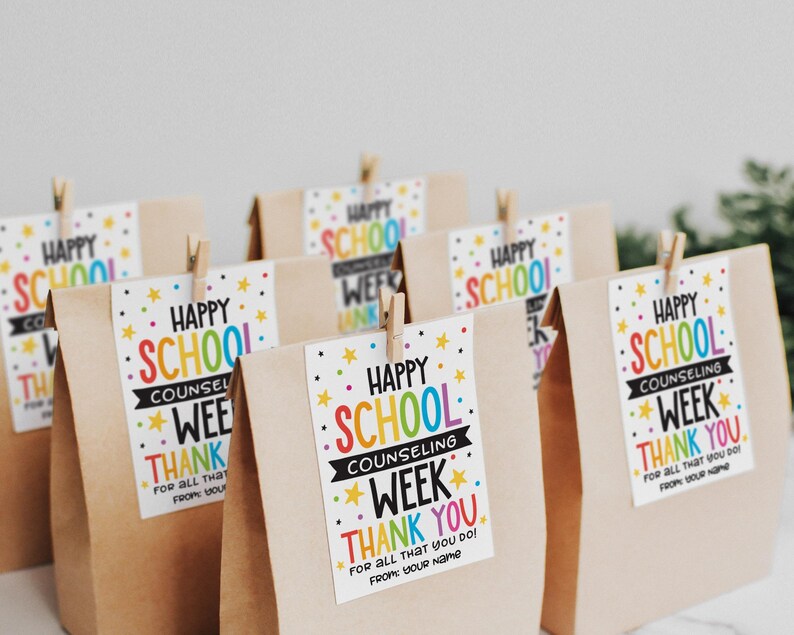 HAPPY
SCHOOL
COUNSELING
WEEK
THANK YOU
FOR ALL THAT YOU DO!
FROM: YOUR NAME
HAPPY
SCHOOL
COUNSELING
WEEK
THANK YOU
FOR ALL THAT YOU DO!
FROM: YOUR NAME
HAPPY
SCHOOL
COUNSELING
WEEK
THANK
FOR ALL THAT
FROM: YOUR
HAPPY
SCHOOL
THANK
FOR ALL
HAPPY
SCHOOL
COUNSELING
WEEK
THANK
HAPPY
SCHOOL
COUNSELING